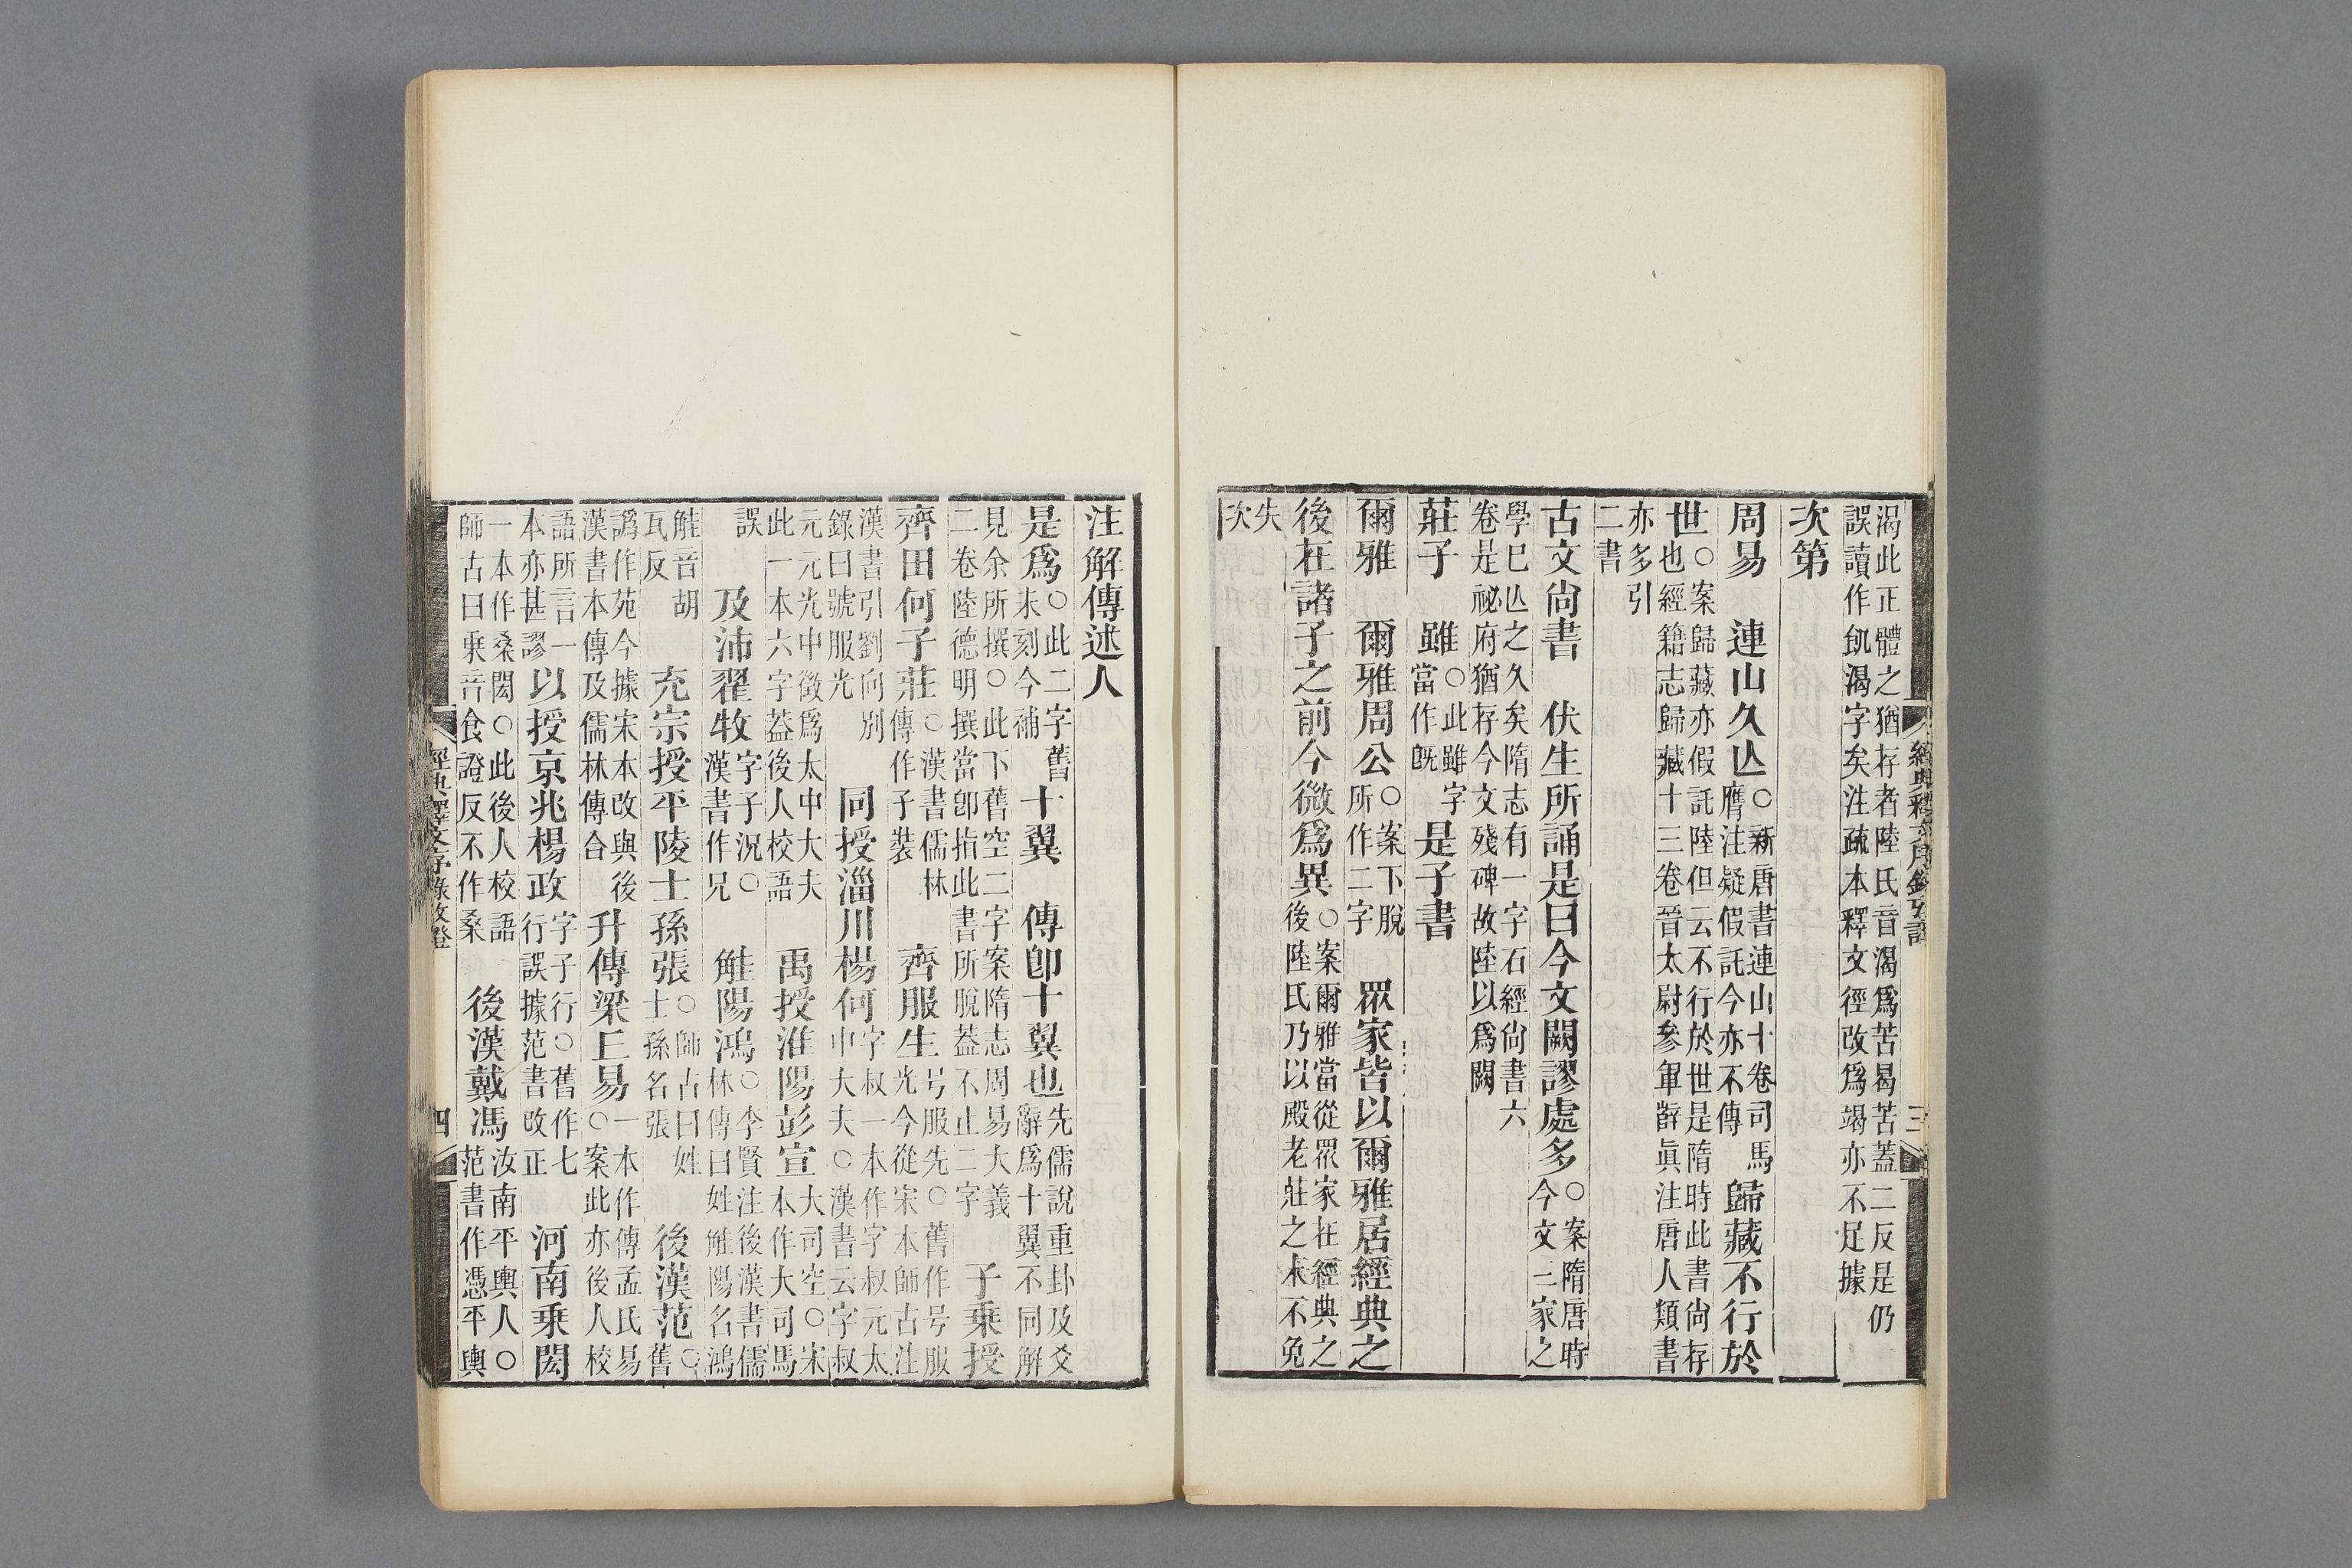 渴此正體之猶存者陸氏音渴爲苦曷苦蓋二反是仍
誤讀作飢渴字矣注疏本釋文徑改爲竭亦不足據
次第
周易　連山久亾○新唐書連山十卷司馬膺注疑假託今亦不傳歸藏不行於
世○案歸藏亦假託陸但云不行於世是隋時此書尙存也經籍志歸藏十三卷晉太尉參軍薛眞注唐人類書
亦多引二書
古文尙書　伏生所誦是曰今文闕謬處多○案隋唐時今文三家之
學已亾之久矣隋志有一字石經尙書六卷是祕府猶存今文殘碑故陸以爲闕
莊子　雖○此雖字當作旣是子書
爾雅　爾雅周公○案下脫所作二字　眾家皆以爾雅居經典之
後在諸子之前今微爲異○案爾雅當從眾家在經典之後陸氏乃以殿老莊之末不免
失次
經典釋文序錄攷證　三
注解傳述人
是爲○此二字舊未刻今補十翼　傳卽十翼也先儒說重卦及爻辭爲十翼不同解
見余所撰○此下舊空二字案隋志周易大義二卷陸德明撰當卽指此書所脫蓋不止二字　子乘授
齊田何子莊○漢書儒林傳作子裝　齊服生号服先○舊作号服光今從宋本師古注
漢書引劉向別錄曰號服光　同授淄川楊何字叔一本作字叔元太中大夫○漢書云字叔
元元光中徵爲太中大夫此一本六字蓋後人校語　禹授淮陽彭宣大司空○宋本作大司馬
誤　及沛翟牧字子況○漢書作兄　觟陽鴻○李賢注後漢書儒林傳曰姓觟陽名鴻
觟音胡瓦反　充宗授平陵士孫張○師古曰姓士孫名張　後漢范○舊
譌作苑今據宋本改與後漢書本傳及儒林傳合　升傳梁丘易一本作傳孟氏易○案此亦後人校
語所言一本亦甚謬以授京兆楊政字子行○舊作七行誤據范書改正　河南乘閎
一本作桑閎○此後人校語師古曰乘音食證反不作桑　後漢戴馮汝南平輿人○范書作憑平輿
經典釋文序錄攷證　四